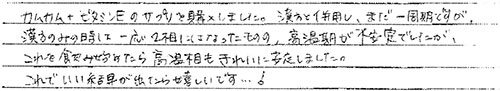 カムカム＋ビタミンEのサプリを購入しました。漢方と併用し、まだ一周期ですが、
漢方のみの時は一応2相にはなったものの、高温期が不安定でしたが、
これを飲み始めたら高温相もきれいに安定しました。
これでいい結果が出たら嬉しいです…!